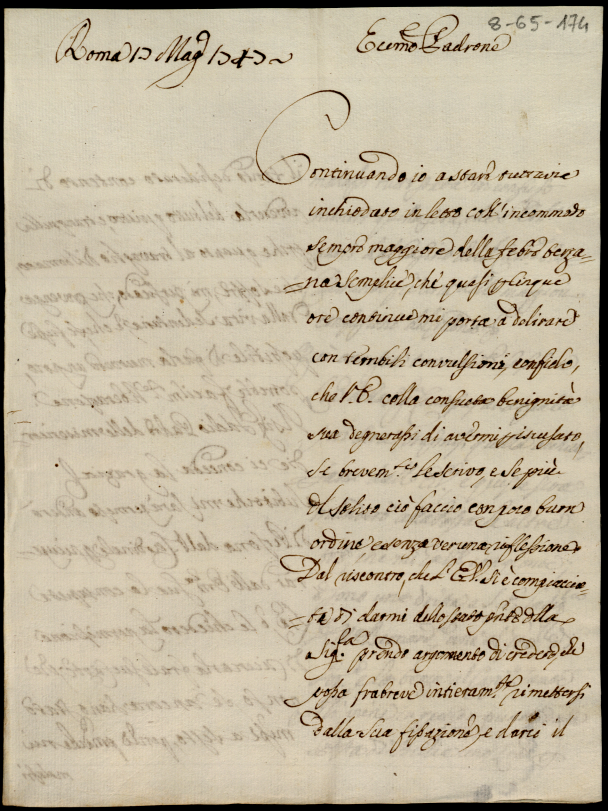 8-65-174
Roma 17 Magº 1747
Ecc.mo Padrone
Continuando io a stare tuttavia
inchiodato in letto coll'incommodo
sempre maggiore della febre terza-
na semplice, che quasi p cinque
ore continue mi porta a delirare
con terribili convulsioni, confido,
che V.E. colla consueta benignità
sua degnerassi di avermi p iscusato,
se brevem.te Le scrivo, e se più
del solito ciò faccio con poco buon
ordine e senza veruna riflessione
Dal riscontro, che L'E.V. si è compiacciu-
ta di darmi dello stato pnte della
Sig.ra prendo argomento di credere, che
possa fra breve intieram.te rimettersi
dalla sua fissazione, e darci il